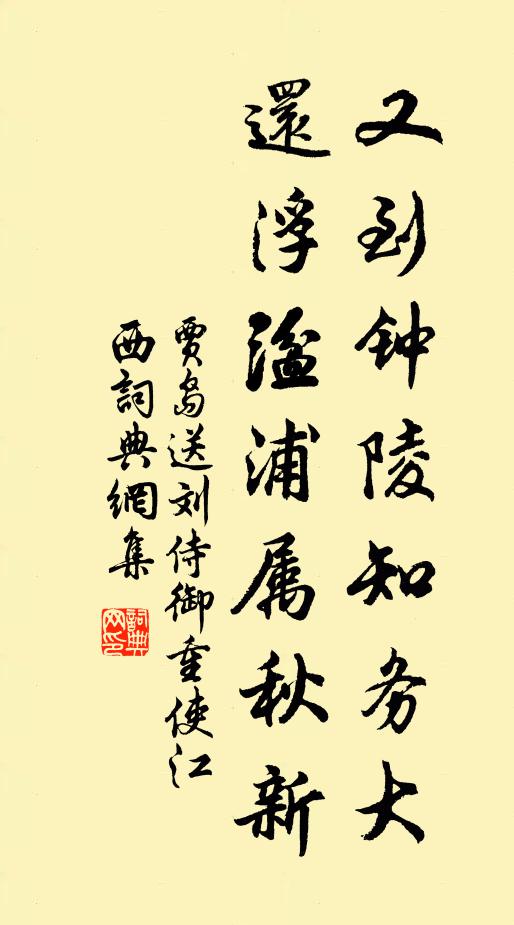 又到钟陵知务大
還浮湓浦属秋新
賈島送刘侍御重使江
西詞典網集
詞典
网印